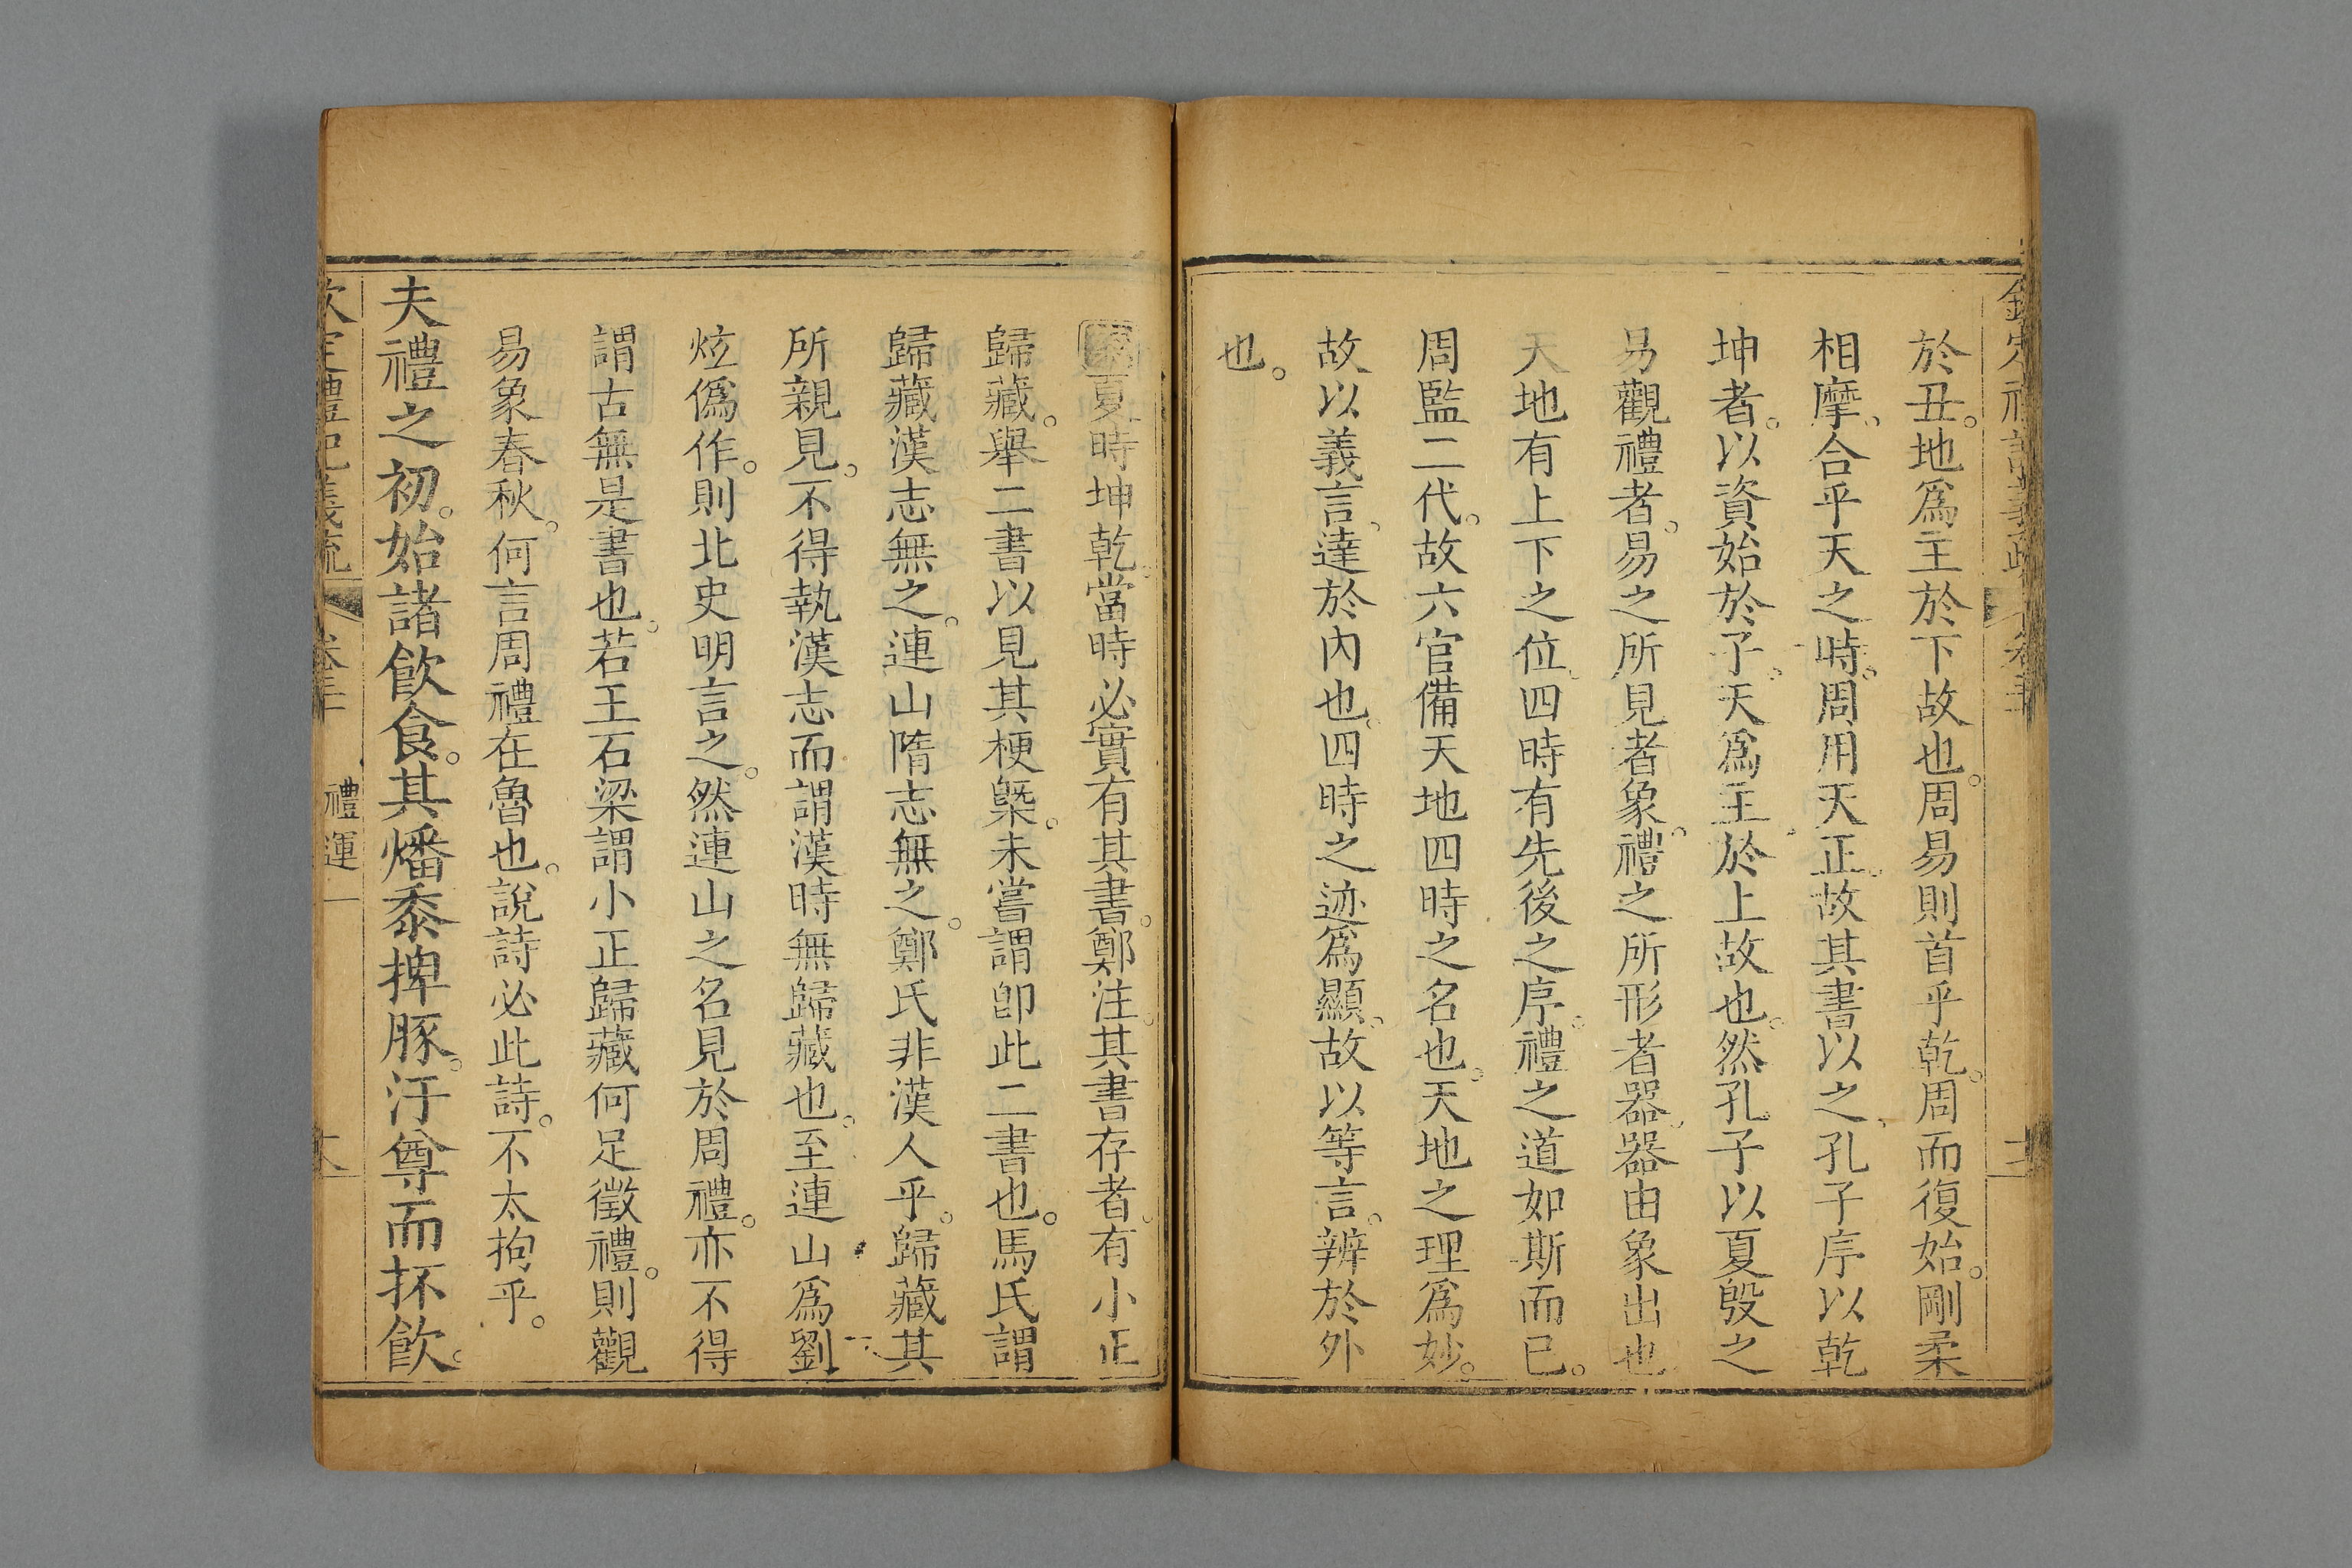 於丑。地爲主於下故也。周易則首乎乾。周而復始。剛柔
相摩。合乎天之時。周用天正。故其書以之。孔子序以乾
坤者。以資始於子。天爲主於上故也。然孔子以夏殷之
易觀禮者。易之所見者象。禮之所形者器。器由象出也
天地有上下之位。四時有先後之序。禮之道如斯而已。
周監二代。故六官備天地四時之名也。天地之理爲妙。
故以義言。達於內也。四時之迹爲顯。故以等言。辨於外
也。
夏時坤乾。當時必實有其書。鄭注。其書存者。有小正
歸藏。舉二書以見其梗槩。未嘗謂卽此二書也。馬氏謂
歸藏漢志無之。連山隋志無之。鄭氏非漢人乎。歸藏其
所親見。不得執漢志而謂漢時無歸藏也。至連山爲劉
炫僞作。則北史明言之。然連山之名見於周禮。亦不得
謂古無是書也。若王石梁謂小正歸藏何足徵禮。則觀
易象春秋。何言周禮在魯也。說詩必此詩。不太拘乎。
夫禮之初。始諸飮食。其燔黍捭豚。汙尊而抔飮。
定禮記義疏 禮運一